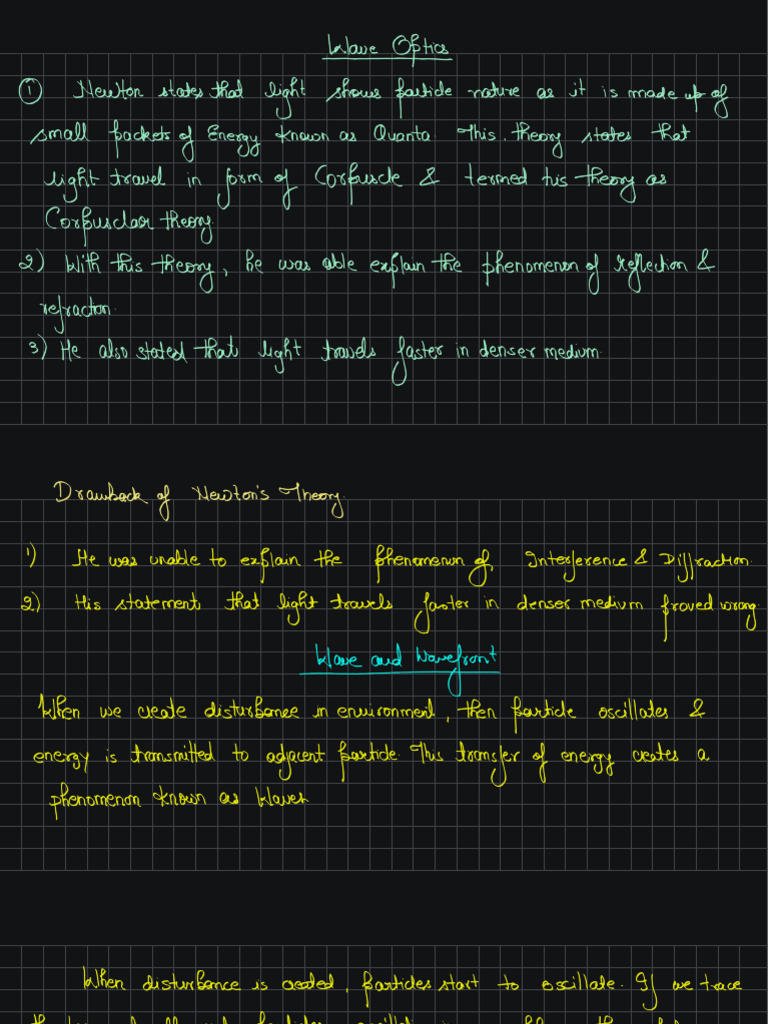 Wave Optics
① Newton states that light shows particle nature as it is made up of
small packets of Energy known as Quanta. This theory states that
light travel in form of Corpuscle & termed this theory as
Corpuscular theory.
2) With this theory, he was able explain the phenomenon of reflection &
refraction.
3) He also stated that light travels faster in denser medium.
Drawback of Newton's Theory.
1) He was unable to explain the phenomenon of Interference & Diffraction.
2) His statement that light travels faster in denser medium proved wrong.
Wave and Wavefront
When we create disturbance in environment, then particle oscillates &
energy is transmitted to adjacent particle. This transfer of energy creates a
phenomenon known as Waves
When disturbance is created, particles start to oscillate. If we trace